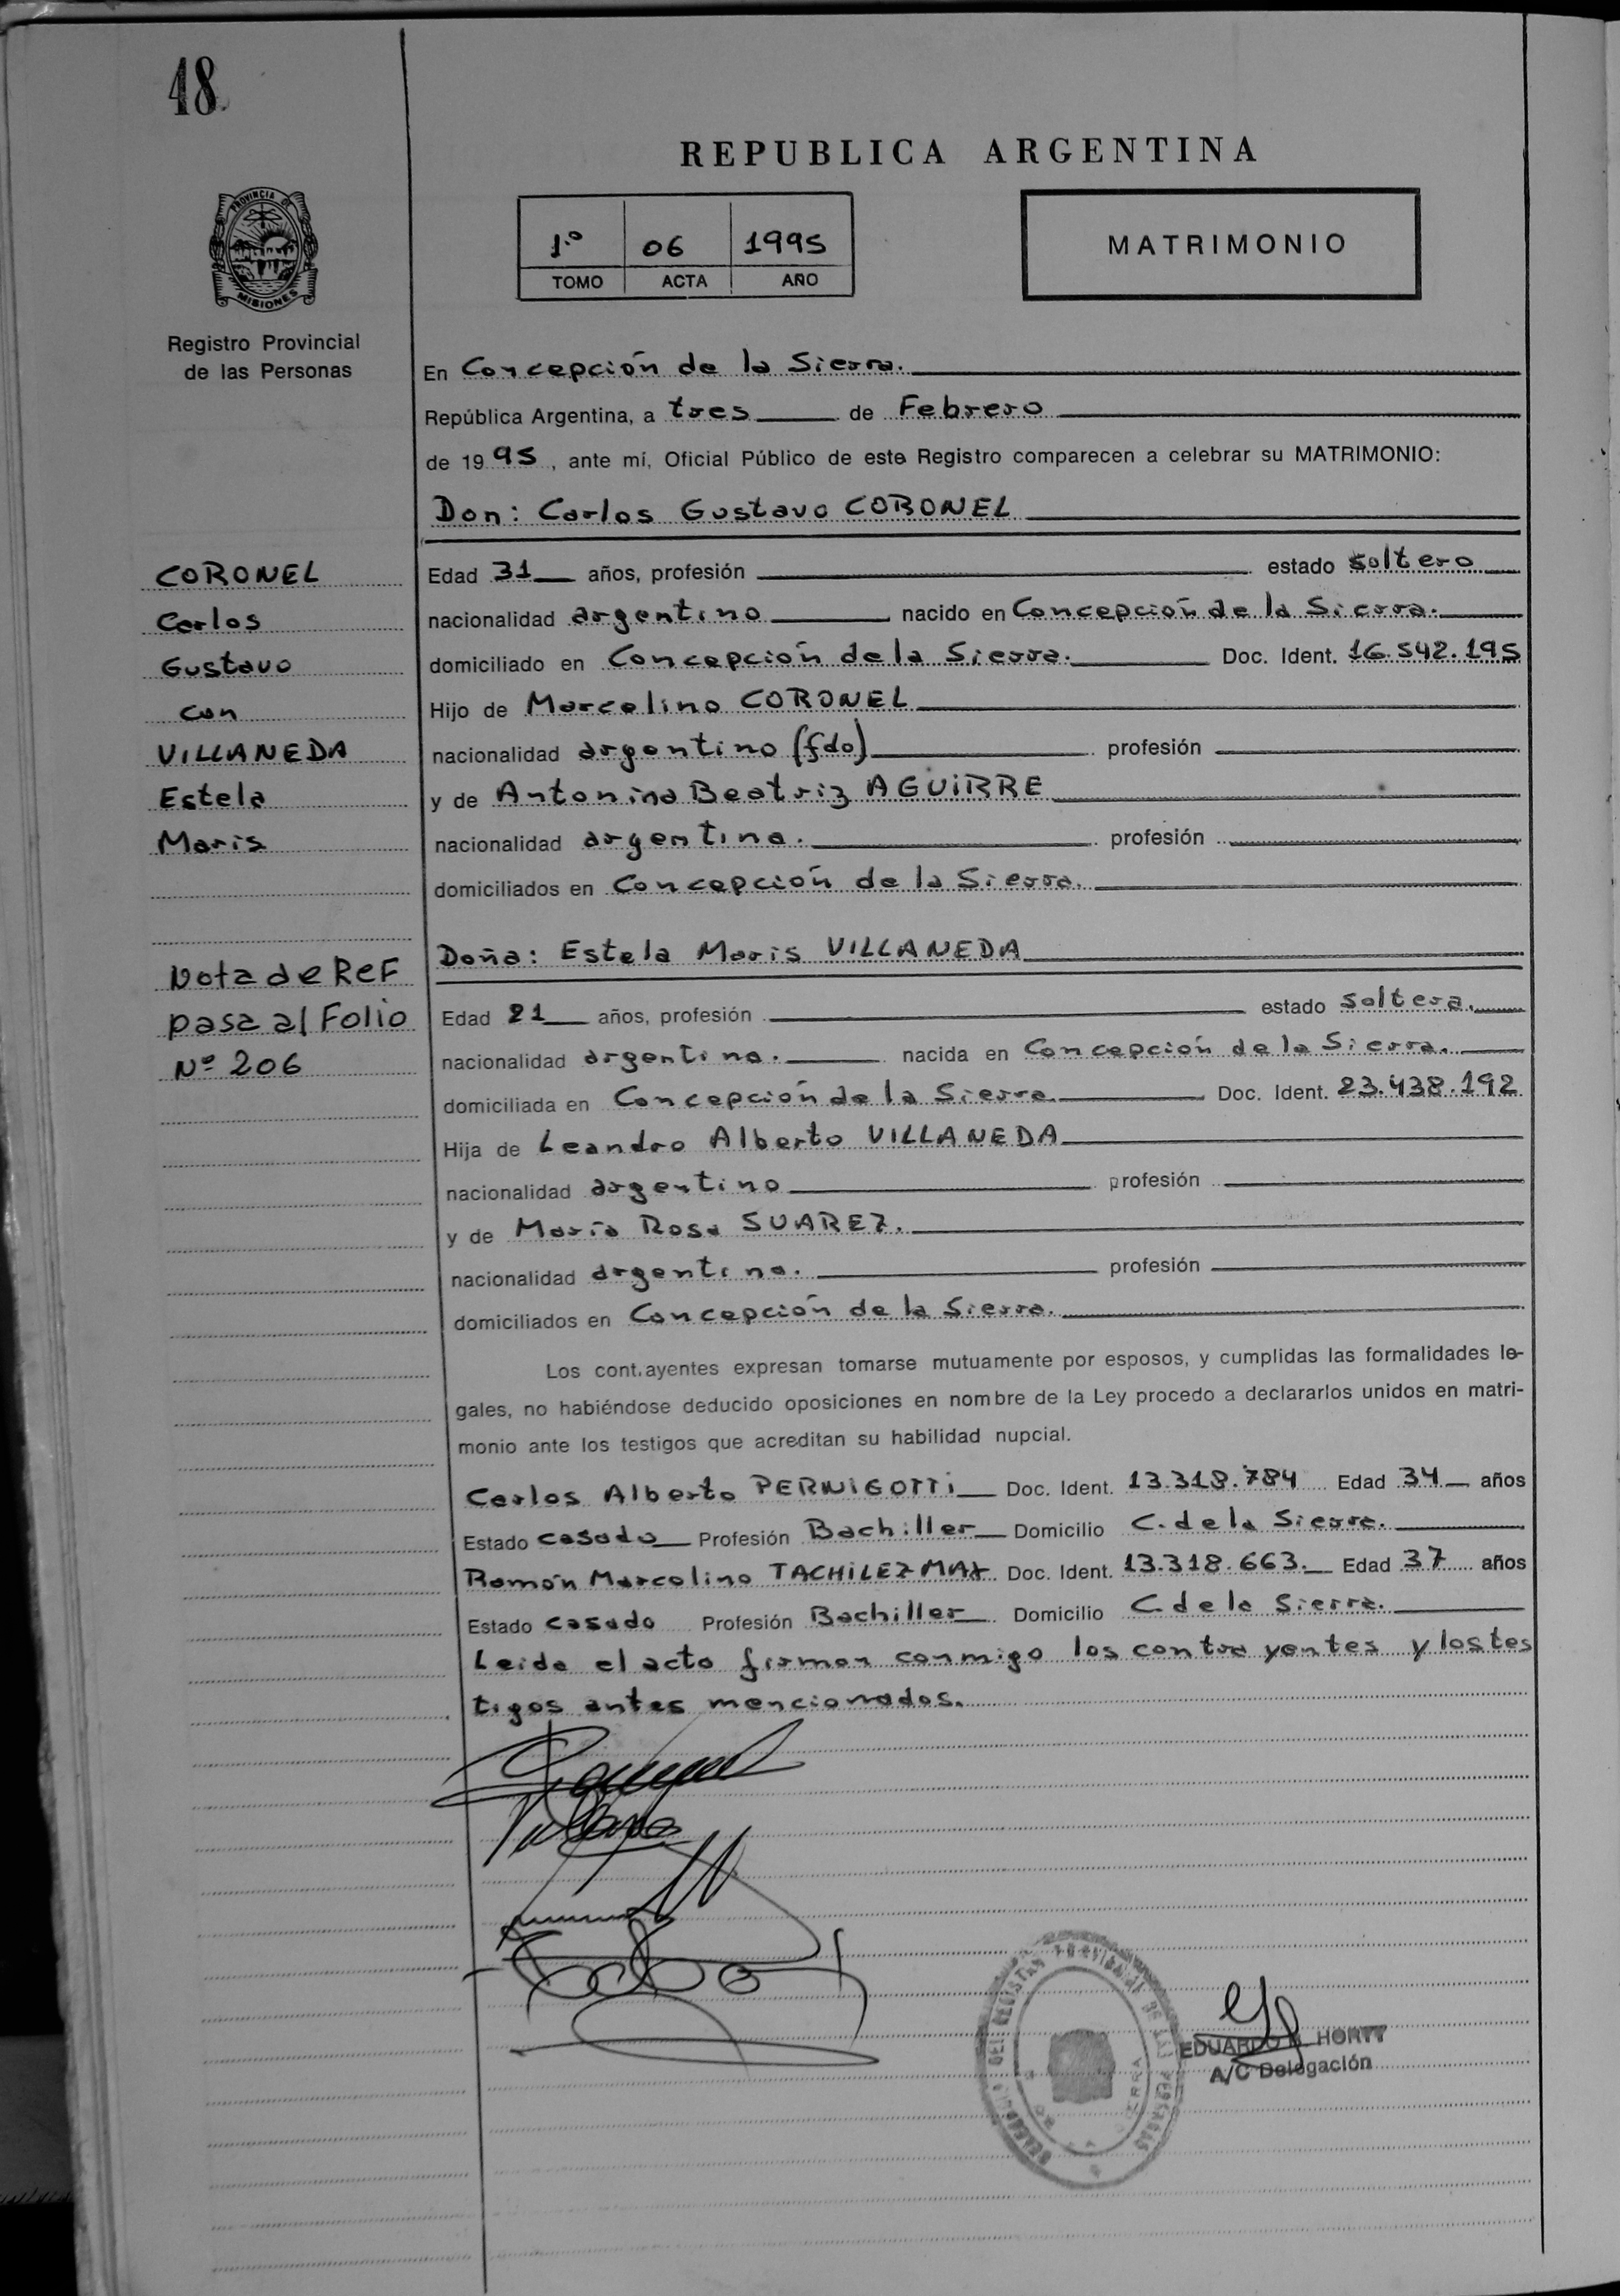 18.
PROVINCIA DE
MISIONES
Registro Provincial
de las Personas
REPUBLICA ARGENTINA
1º 06 1995
TOMO ACTA AÑO
MATRIMONIO
En Concepción de la Sierra.
República Argentina, a tres de Febrero
de 1995, ante mí, Oficial Público de este Registro comparecen a celebrar su MATRIMONIO:
Don: Carlos Gustavo CORONEL
CORONEL
Carlos
Gustavo
con
VILLANEDA
Estela
Maris
Edad 31 años, profesión estado soltero
nacionalidad argentino nacido en Concepción de la Sierra.
domiciliado en Concepción de la Sierra. Doc. Ident. 16.542.195
Hijo de Marcelino CORONEL
nacionalidad argentino (fdo) profesión
y de Antonina Beatriz AGUIRRE
nacionalidad argentina. profesión
domiciliados en Concepción de la Sierra.
Nota de ReF
pasa al Folio
Nº 206
Doña: Estela Maris VILLANEDA
Edad 21 años, profesión estado soltera.
nacionalidad argentina. nacida en Concepción de la Sierra.
domiciliada en Concepción de la Sierra Doc. Ident. 23.438.192
Hija de Leandro Alberto VILLANEDA
nacionalidad argentino profesión
y de María Rosa SUAREZ.
nacionalidad argentina. profesión
domiciliados en Concepción de la Sierra.
Los contrayentes expresan tomarse mutuamente por esposos, y cumplidas las formalidades le-
gales, no habiéndose deducido oposiciones en nombre de la Ley procedo a declararlos unidos en matri-
monio ante los testigos que acreditan su habilidad nupcial.
Carlos Alberto PERNIGOTTI Doc. Ident. 13.318.784 Edad 34 años
Estado casado Profesión Bachiller Domicilio C. de la Sierra.
Ramón Marcelino TACHILEZMAX Doc. Ident. 13.318.663. Edad 37 años
Estado casado Profesión Bachiller Domicilio C. de la Sierra.
Leida el acto firman conmigo los contra yentes y los tes
tigos antes mencionados.
EDUARDO HORTT
A/C Delegación